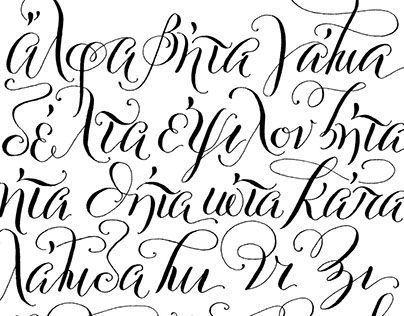 άλφα βήτα γάμα
δέλτα έψιλον ζήτα
ήτα θήτα ιώτα κάπα
λάμδα μι νι ξι